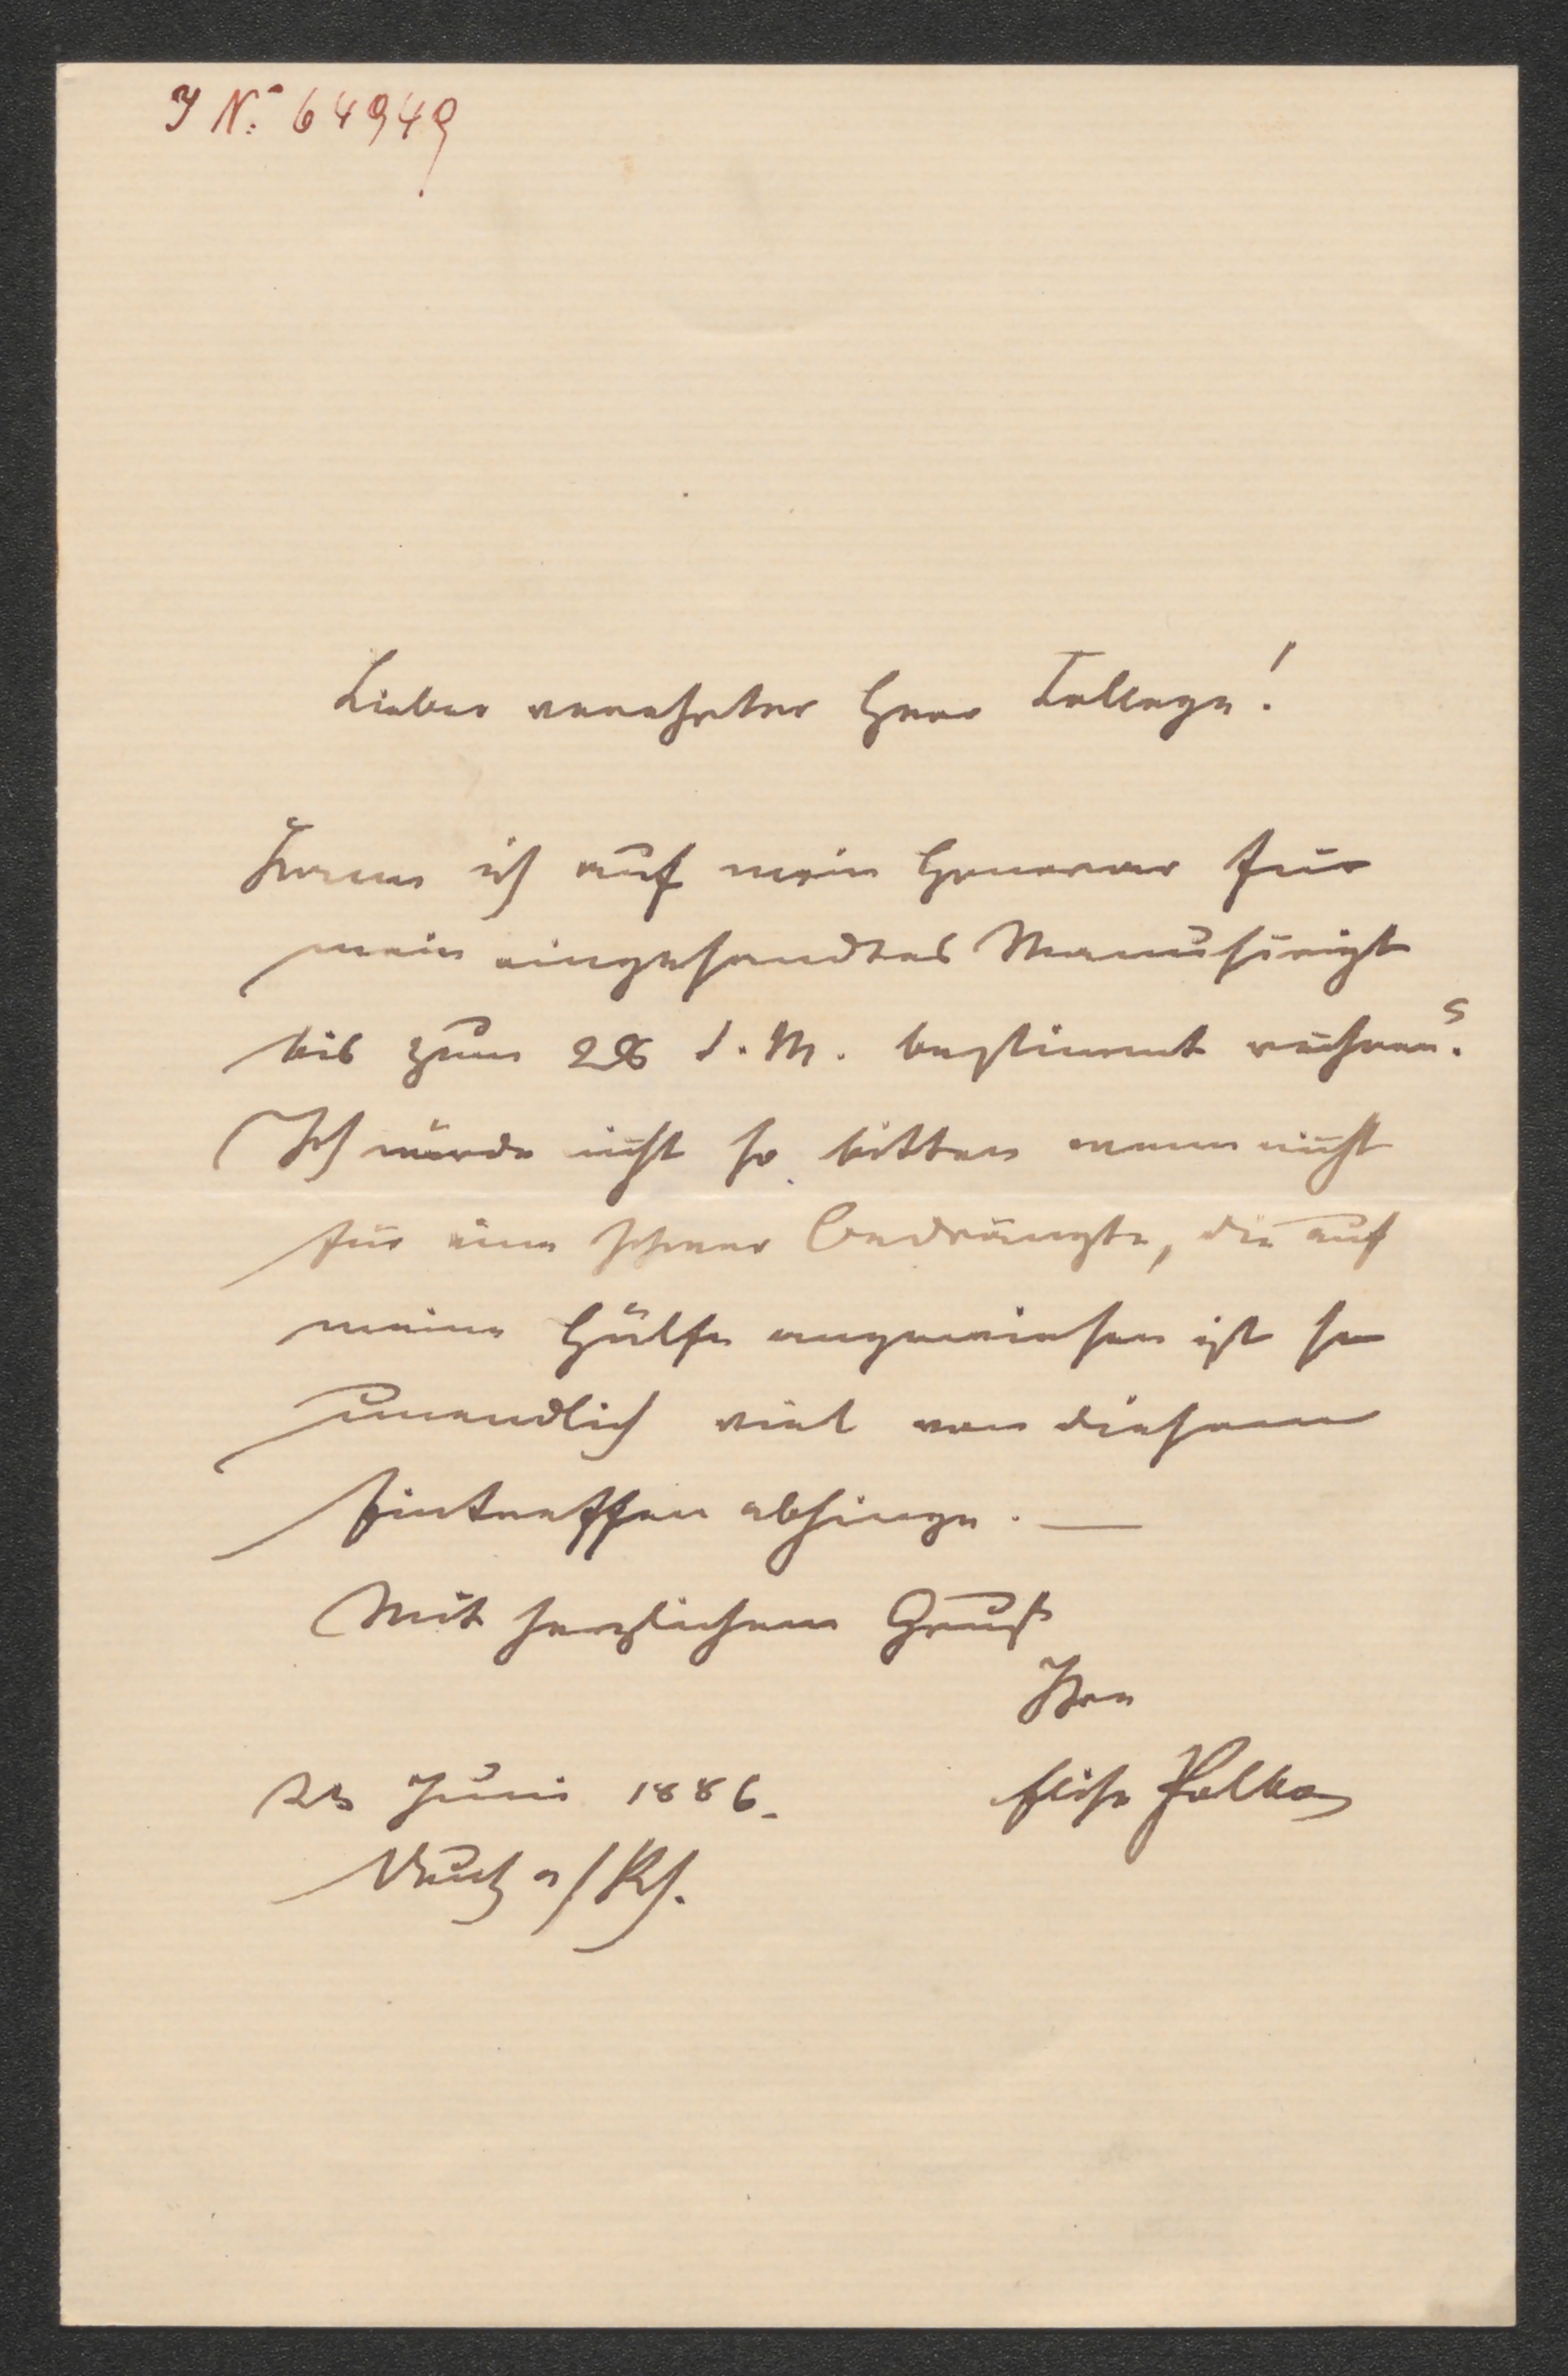 J N: 64949
Lieber verehrter Herr College!
Kann ich auf mein Honorar für
mein eingesandtes Manuscript
bis zum 28 d. M. bestimmt rechnen?
Ich würde nicht so bitten wenn nicht
für eine schwer Bedrängte, die auf
meine Hülfe angewiesen ist so
unendlich viel von diesem
Eintreffen abhinge. —
Mit herzlichem Gruß
Ihre
Elise Polko
23 Juni 1886.
Deutz a/Rh.